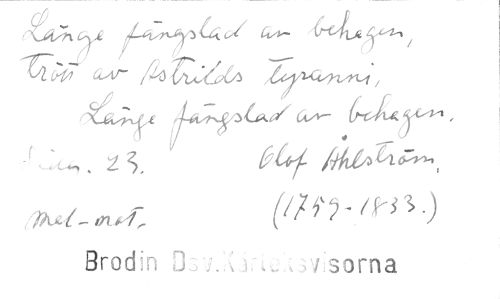 Länge fängslad av behagen,
trött av Astrilds tyranni,
Länge fängslad av behagen.
Sidan. 23. Olof Åhlström,
mel-not. (1759-1833.)
Brodin Dsv.Kärleksvisorna